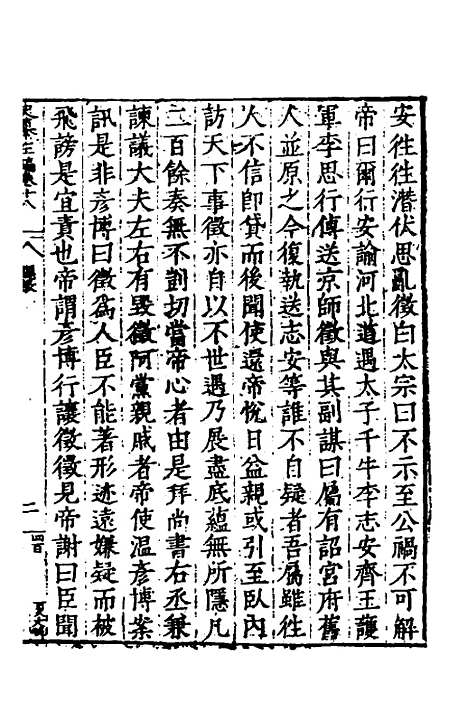 安徃徃潛伏思亂徵白太宗曰不示至公禍不可解
帝曰爾行安諭河北道遇太子千牛李志安齊王護
軍李思行傳送京師徵與其副謀曰屬有詔宮府舊
人並原之今復執送志安等誰不自疑者吾屬雖徃
人不信卽貸而後聞使還帝悅日益親或引至臥內
訪天下事徵亦自以不世遇乃展盡底蘊無所隱凡
二百餘奏無不剴切當帝心者由是拜尚書右丞兼
諫議大夫左右有毀徵阿黨親戚者帝使溫彥博案
訊是非彥博曰徵爲人臣不能著形迹遠嫌疑而被
飛謗是宜責也帝謂彥博行讓徵徵見帝謝曰臣聞
二